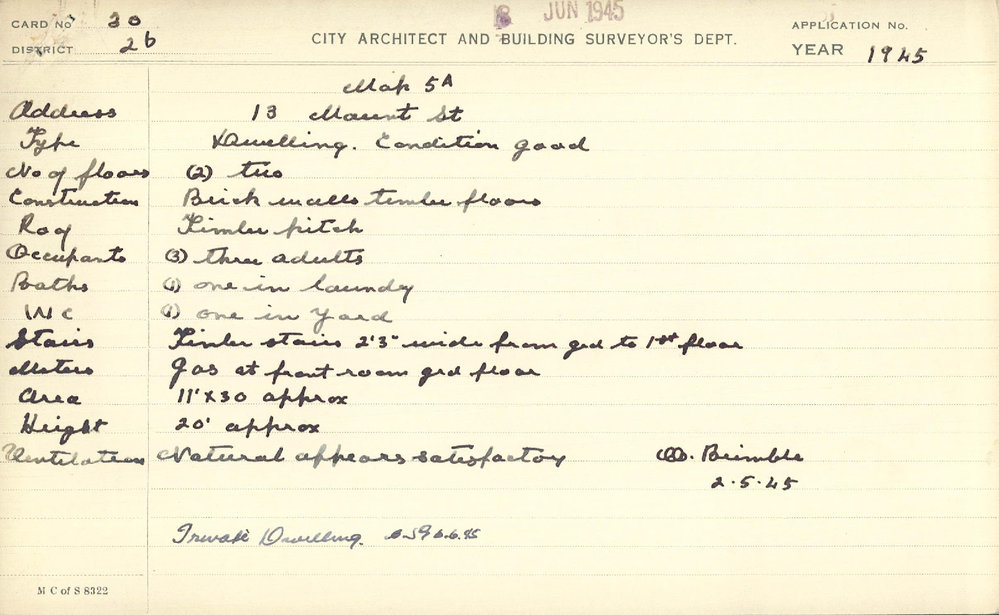 CARD No 30
8 JUN 1945
APPLICATION No.
DISTRICT 26
CITY ARCHITECT AND BUILDING SURVEYOR'S DEPT.
YEAR 1945
Map 5A
Address 13 Mount St
Type Dwelling. Condition good
No of floors (2) two
Construction Brick walls timber floors
Roof Timber pitch
Occupants (3) three adults
Baths (1) one in laundry
WC (1) one in yard
Stairs Timber stairs 2'3" wide from grd to 1st floor
Meters Gas at front room grd floor
Area 11' X 30 approx
Height 20' approx
Ventilation Natural appears satisfactory Brimble
2.5.45
Private Dwelling. 6.6.45
M C of S 8322